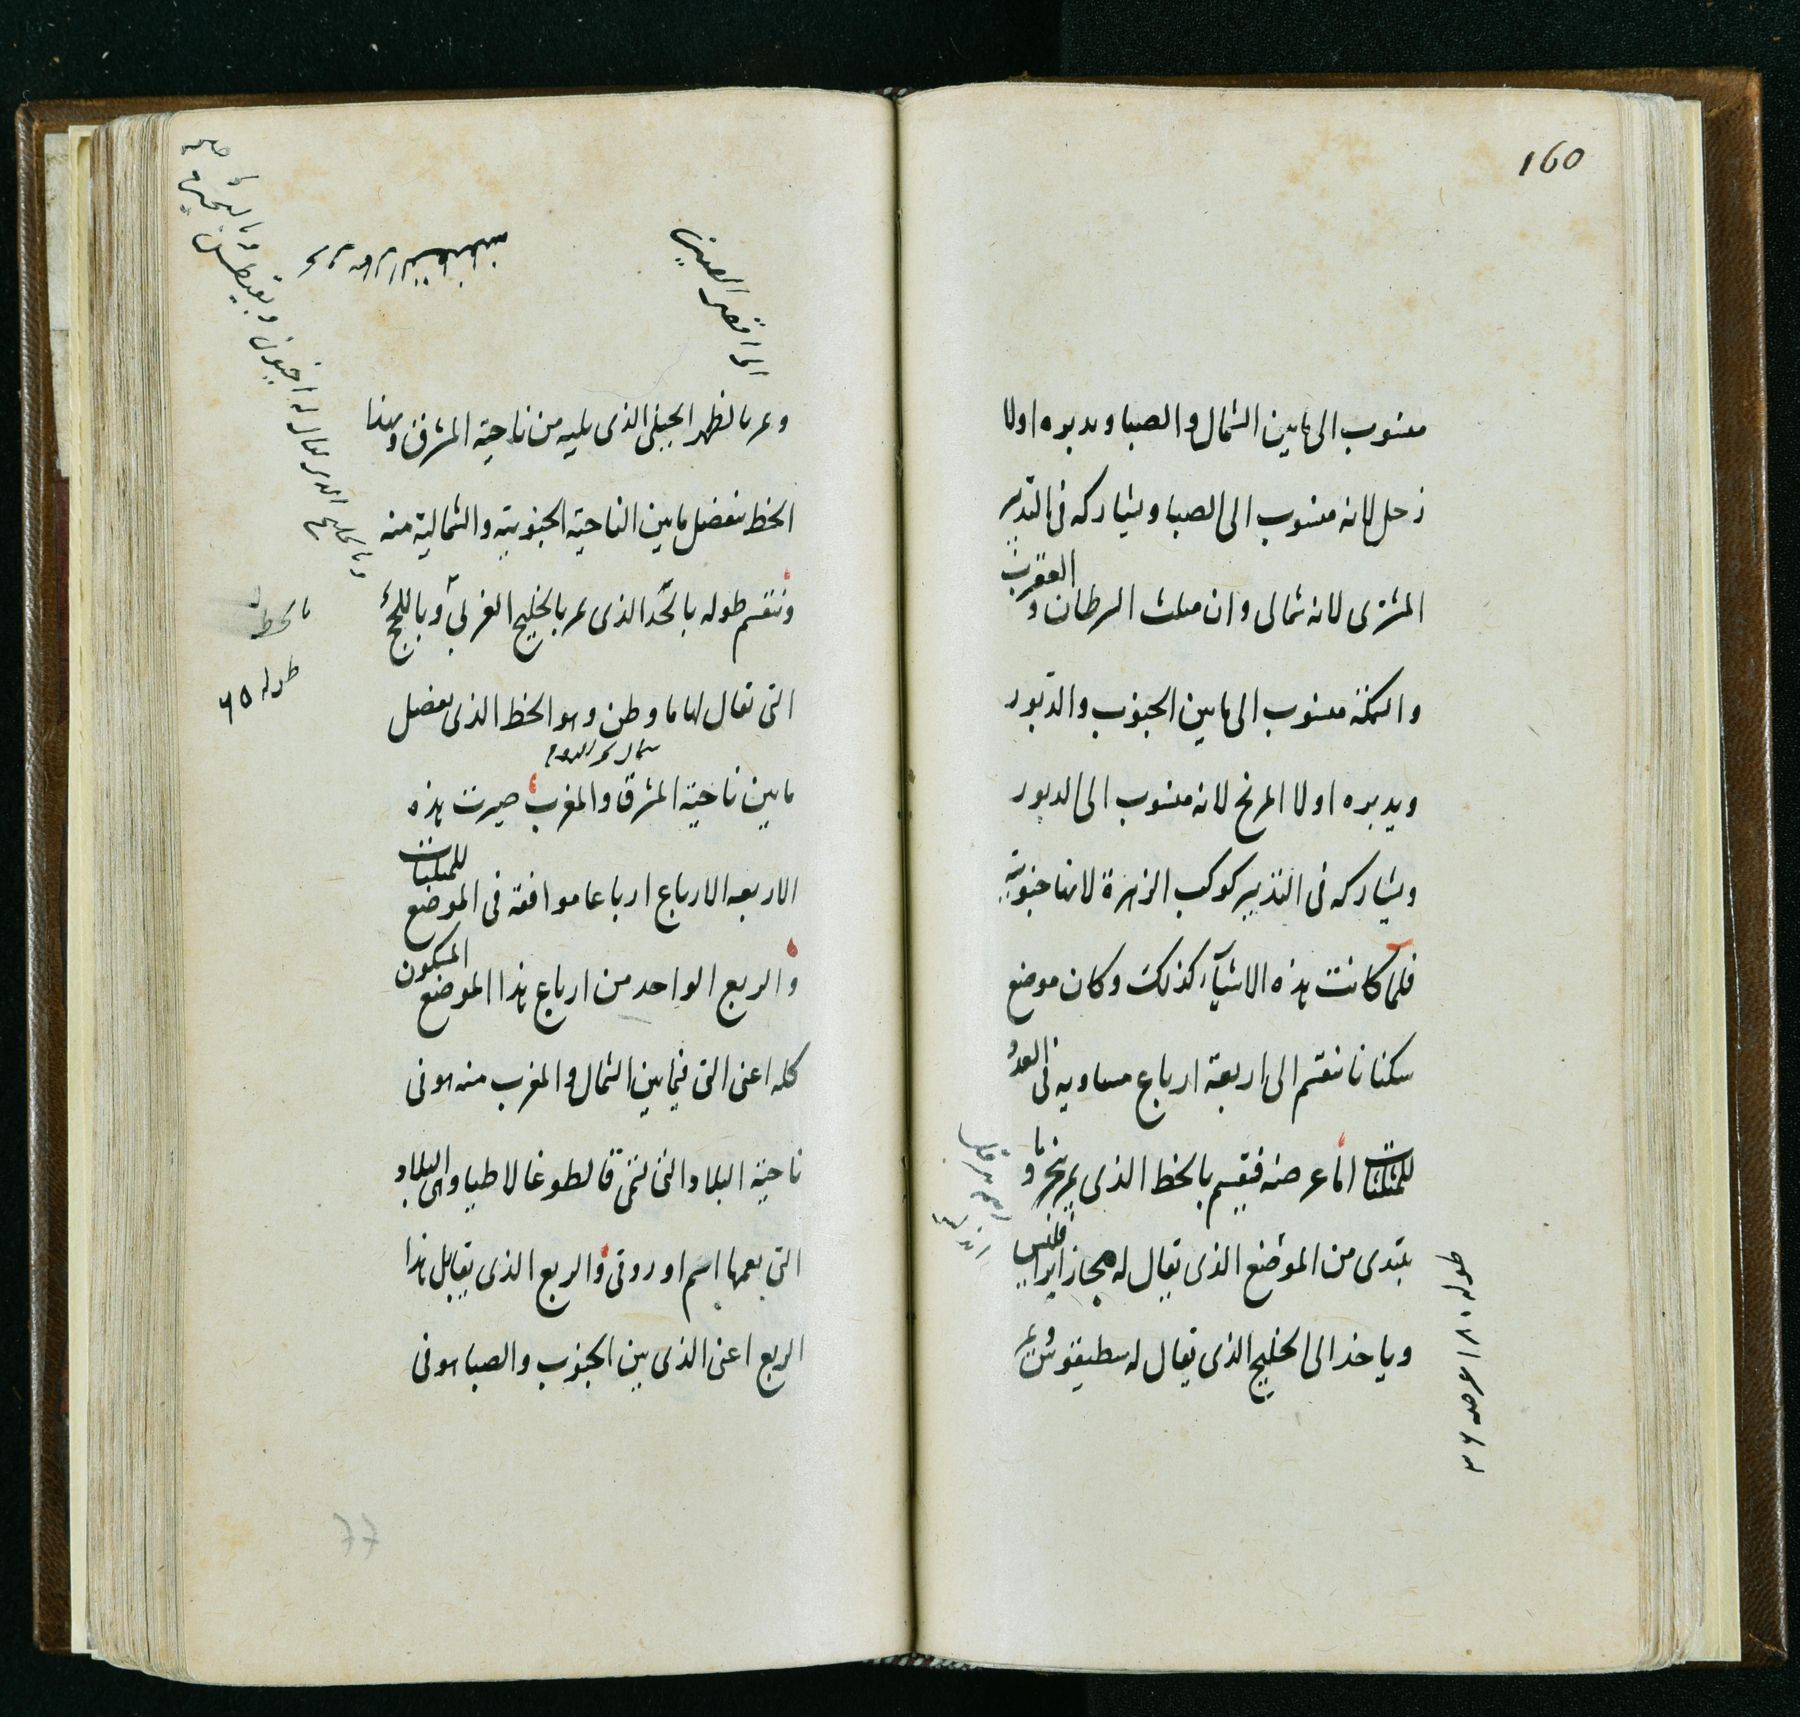 160
منسوب الى ما بين الشمال والصبا ويدبره اولا
زحل لانه منسوب الى الصبا ويشاركه فى التدبير
المشترى لانه شمالى وان مثلث السرطان والعقرب
والسمكة منسوب الى ما بين الجنوب والدبور
ويدبره اولا المريخ لانه منسوب الى الدبور
ويشاركه فى التدبير كوكب الزهرة لانها جنوبية
فلما كانت هذه الاشيآء كذلك وكان موضع
سكنانا ينقسم الى اربعة ارباع مساويه فى العدد
للمثلثات اما عرضه فيقسم بالخط الذى يمر ببحرنا و
يبتدى من الموضع الذى يقال له مجاز ايراقلس
وياخذ الى الخليج الذى يقال له سطيقوش ويمر
طوله ١٨٠ عرضه ٣٦
الى اقصى الصين
ويمر بالظهر الجبلى الذى يليه من ناحية المشرق وبهذا
الخط ينفصل ما بين الناحية الجنوبية والشمالية منه
وينقسم طوله بالحد الذى يمر بالخليج العربى وباللجج
التى يقال لها ماوطن وهو الخط الذى يفصل
ما بين ناحية المشرق والمغرب صيرت هذه
الاربعه الارباع ارباعا موافقة فى الموضع للمثلثات
والربع الواحد من ارباع هذا الموضع المسكون
كله اعنى التى فيما بين الشمال والمغرب منه هو فى
ناحية البلاد التى تسمى قالطوغالاطيا وهى البلاد
التى يعمها اسم اوروفى والربع الذى يقابل هذا
الربع اعنى الذى بين الجنوب والصبا هو فى
طوله ٦٥